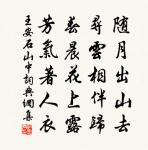 隨月出山去
尋雲相伴歸
春晨花上露
芳氣著人衣
王安石山中詞與網集